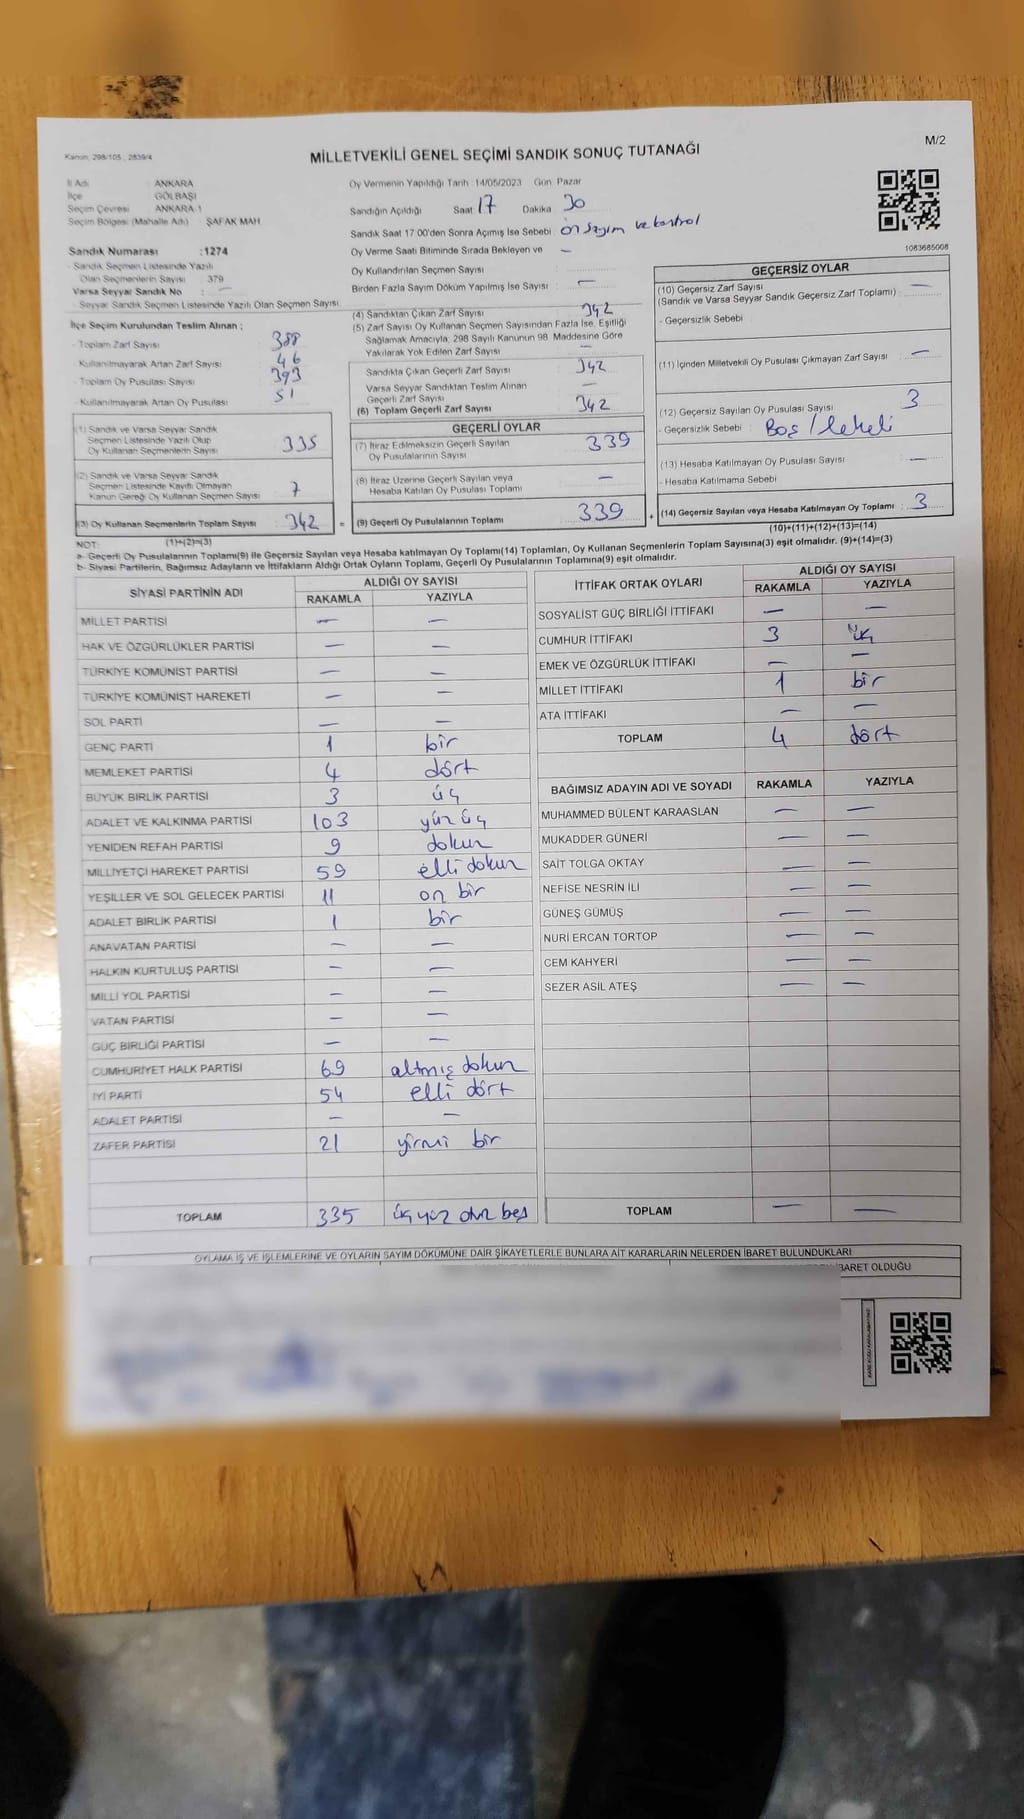 Kanun: 298/105, 2839/4
MİLLETVEKİLİ GENEL SEÇİMİ SANDIK SONUÇ TUTANAĞI
M/2
İl Adı : ANKARA
İlçe : GÖLBAŞI
Seçim Çevresi : ANKARA 1
Seçim Bölgesi (Mahalle Adı) : ŞAFAK MAH.
Oy Vermenin Yapıldığı Tarih :14/05/2023 Gün: Pazar
Sandığın Açıldığı Saat 17 Dakika 30
Sandık Saat 17:00'den Sonra Açımış İse Sebebi : ön sayım ve kontrol
Oy Verme Saati Bitiminde Sırada Bekleyen ve
Oy Kullandırılan Seçmen Sayısı : —
Birden Fazla Sayım Döküm Yapılmış İse Sayısı : —
1063685008
Sandık Numarası :1274
- Sandık Seçmen Listesinde Yazılı
Olan Seçmenlerin Sayısı : 379
Varsa Seyyar Sandık No :
- Seyyar Sandık Seçmen Listesinde Yazılı Olan Seçmen Sayısı:
İlçe Seçim Kurulundan Teslim Alınan ;
- Toplam Zarf Sayısı : 388
- Kullanılmayarak Artan Zarf Sayısı : 46
- Toplam Oy Pusulası Sayısı : 393
- Kullanılmayarak Artan Oy Pusulası : 51
(1) Sandık ve Varsa Seyyar Sandık
Seçmen Listesinde Yazılı Olup
Oy Kullanan Seçmenlerin Sayısı : 335
(2) Sandık ve Varsa Seyyar Sandık
Seçmen Listesinde Kayıtlı Olmayan
Kanun Gereği Oy Kullanan Seçmen Sayısı : 7
(3) Oy Kullanan Seçmenlerin Toplam Sayısı : 342
(1)+(2)=(3)
(4) Sandıktan Çıkan Zarf Sayısı : 342
(5) Zarf Sayısı Oy Kullanan Seçmen Sayısından Fazla İse, Eşitliği
Sağlamak Amacıyla, 298 Sayılı Kanunun 98. Maddesine Göre
Yakılarak Yok Edilen Zarf Sayısı : —
Sandıkta Çıkan Geçerli Zarf Sayısı : 342
Varsa Seyyar Sandıktan Teslim Alınan
Geçerli Zarf Sayısı : —
(6) Toplam Geçerli Zarf Sayısı : 342
GEÇERLİ OYLAR
(7) İtiraz Edilmeksizin Geçerli Sayılan
Oy Pusulalarının Sayısı : 339
(8) İtiraz Üzerine Geçerli Sayılan veya
Hesaba Katılan Oy Pusulası Toplamı : —
= (9) Geçerli Oy Pusulalarının Toplamı : 339
GEÇERSİZ OYLAR
(10) Geçersiz Zarf Sayısı
(Sandık ve Varsa Seyyar Sandık Geçersiz Zarf Toplamı) : —
- Geçersizlik Sebebi :
(11) İçinden Milletvekili Oy Pusulası Çıkmayan Zarf Sayısı : —
(12) Geçersiz Sayılan Oy Pusulası Sayısı : 3
- Geçersizlik Sebebi : Boş / lekeli
(13) Hesaba Katılmayan Oy Pusulası Sayısı : —
- Hesaba Katılmama Sebebi :
+ (14) Geçersiz Sayılan veya Hesaba Katılmayan Oy Toplamı : 3
(10)+(11)+(12)+(13)=(14)
NOT:
a- Geçerli Oy Pusulalarının Toplamı(9) ile Geçersiz Sayılan veya Hesaba katılmayan Oy Toplamı(14) Toplamları, Oy Kullanan Seçmenlerin Toplam Sayısına(3) eşit olmalıdır. (9)+(14)=(3)
b- Siyasi Partilerin, Bağımsız Adayların ve İttifakların Aldığı Ortak Oyların Toplamı, Geçerli Oy Pusulalarının Toplamına(9) eşit olmalıdır.
SİYASİ PARTİNİN ADI ALDIĞI OY SAYISI
RAKAMLA YAZIYLA
MİLLET PARTİSİ — —
HAK VE ÖZGÜRLÜKLER PARTİSİ — —
TÜRKİYE KOMÜNİST PARTİSİ — —
TÜRKİYE KOMÜNİST HAREKETİ — —
SOL PARTİ — —
GENÇ PARTİ 1 bir
MEMLEKET PARTİSİ 4 dört
BÜYÜK BİRLİK PARTİSİ 3 üç
ADALET VE KALKINMA PARTİSİ 103 yüz üç
YENİDEN REFAH PARTİSİ 9 dokuz
MİLLİYETÇİ HAREKET PARTİSİ 59 elli dokuz
YEŞİLLER VE SOL GELECEK PARTİSİ 11 on bir
ADALET BİRLİK PARTİSİ 1 bir
ANAVATAN PARTİSİ — —
HALKIN KURTULUŞ PARTİSİ — —
MİLLİ YOL PARTİSİ — —
VATAN PARTİSİ — —
GÜÇ BİRLİĞİ PARTİSİ — —
CUMHURİYET HALK PARTİSİ 69 altmış dokuz
İYİ PARTİ 54 elli dört
ADALET PARTİSİ — —
ZAFER PARTİSİ 21 yirmi bir
TOPLAM 335 üç yüz otuz beş
İTTİFAK ORTAK OYLARI ALDIĞI OY SAYISI
RAKAMLA YAZIYLA
SOSYALİST GÜÇ BİRLİĞİ İTTİFAKI — —
CUMHUR İTTİFAKI 3 üç
EMEK VE ÖZGÜRLÜK İTTİFAKI — —
MİLLET İTTİFAKI 1 bir
ATA İTTİFAKI — —
TOPLAM 4 dört
BAĞIMSIZ ADAYIN ADI VE SOYADI RAKAMLA YAZIYLA
MUHAMMED BÜLENT KARAASLAN — —
MUKADDER GÜNERİ — —
SAİT TOLGA OKTAY — —
NEFİSE NESRİN İLİ — —
GÜNEŞ GÜMÜŞ — —
NURİ ERCAN TORTOP — —
CEM KAHYERİ — —
SEZER ASİL ATEŞ — —
TOPLAM — —
OYLAMA İŞ VE İŞLEMLERİNE VE OYLARIN SAYIM DÖKÜMÜNE DAİR ŞİKAYETLERLE BUNLARA AİT KARARLARIN NELERDEN İBARET BULUNDUKLARI
BARET OLDUĞU